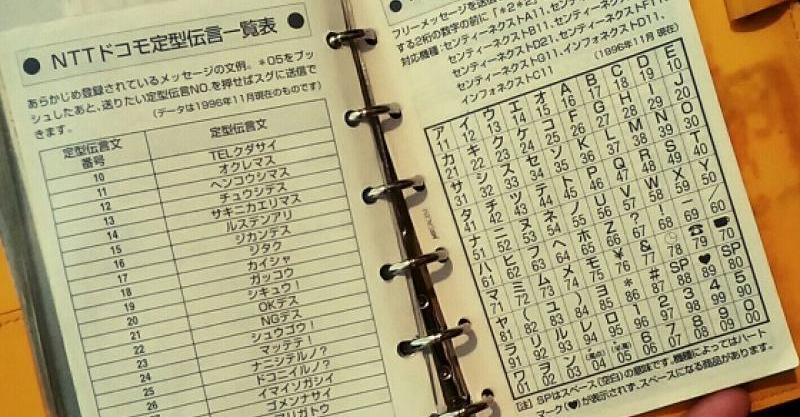 ● NTTドコモ定型伝言一覧表 ●
あらかじめ登録されているメッセージの文例。*05をプッ
シュしたあと、送りたい定型伝言NO.を押せばスグに送信で
きます。 (データは1996年11月現在のものです)
定型伝言文番号 定型伝言文
10 TELクダサイ
11 オクレマス
12 ヘンコウシマス
13 チュウシデス
14 サキニカエリマス
15 ルステンアリ
16 ジカンデス
17 ジタク
18 カイシャ
19 ガッコウ
20 シキュウ!
21 OKデス
22 NGデス
23 シュウゴウ!
24 マッテテ!
25 ナニシテルノ?
26 ドコニイルノ?
イマイソガシイ
ゴメンナサイ
アリガトウ
フリーメッセージを送信
する2桁の数字の前に「*2*2」
対応機種:センティーネクストA11、センティーネクスト
センティーネクストB11、センティーネクストF11
センティーネクストD21、センティーネクストD11、
センティーネクストG11、インフォネクスト
インフォネクストC11 (1996年11月 現在)
ア イ ウ エ オ A B C D E
11 12 13 14 15 16 17 18 19 10
カ キ ク ケ コ F G H I J
21 22 23 24 25 26 27 28 29 20
サ シ ス セ ソ K L M N O
31 32 33 34 35 36 37 38 39 30
タ チ ツ テ ト P Q R S T
41 42 43 44 45 46 47 48 49 40
ナ ニ ヌ ネ ノ U V W X Y
51 52 53 54 55 56 57 58 59 50
ハ ヒ フ ヘ ホ Z ? ! ー /
61 62 63 64 65 66 67 68 69 60
マ ミ ム メ モ ¥ & ☎
71 72 73 74 75 76 77 78 79 70
ヤ ( ユ ) ヨ * # SP ♥ SP
81 82 83 84 85 86 87 88 89 80
ラ リ ル レ ロ 1 2 3 4 5
91 92 93 94 95 96 97 98 99 90
ワ ヲ ン 6 7 8 9 0
01 02 03 04 05 06 07 08 09 00
(注) SPはスペース(空白)の意味です。機種によってはハート
マーク(♥)が表示されず、スペースになる商品があります。